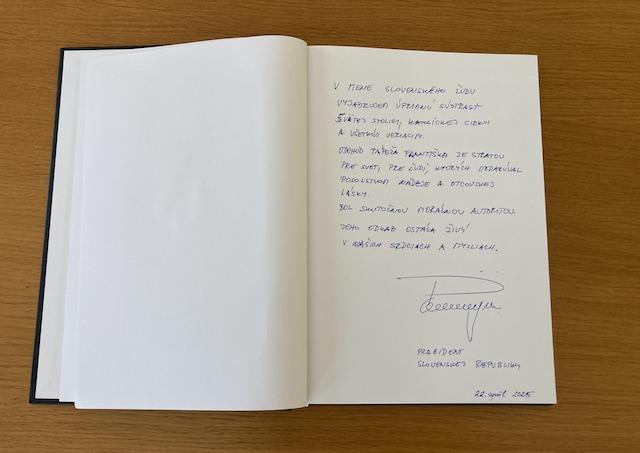 V MENE SLOVENSKÉHO ĽUDU
VYJADRUJEM ÚPRIMNÚ SÚSTRASŤ
SVÄTEJ STOLICI, KATOLÍCKEJ CIRKVI
A VŠETKÝM VERIACIM.
ODCHOD PÁPEŽA FRANTIŠKA JE STRATOU
PRE SVET, PRE ĽUDÍ, KTORÝCH OBDARÚVAL
POSOLSTVOM NÁDEJE A OTCOVSKEJ
LÁSKY.
BOL SKUTOČNOU MORÁLNOU AUTORITOU.
JEHO ODKAZ OSTÁVA ŽIVÝ
V NAŠICH SRDCIACH A MYSLIACH.
PREZIDENT
SLOVENSKEJ REPUBLIKY
22. apríl 2025